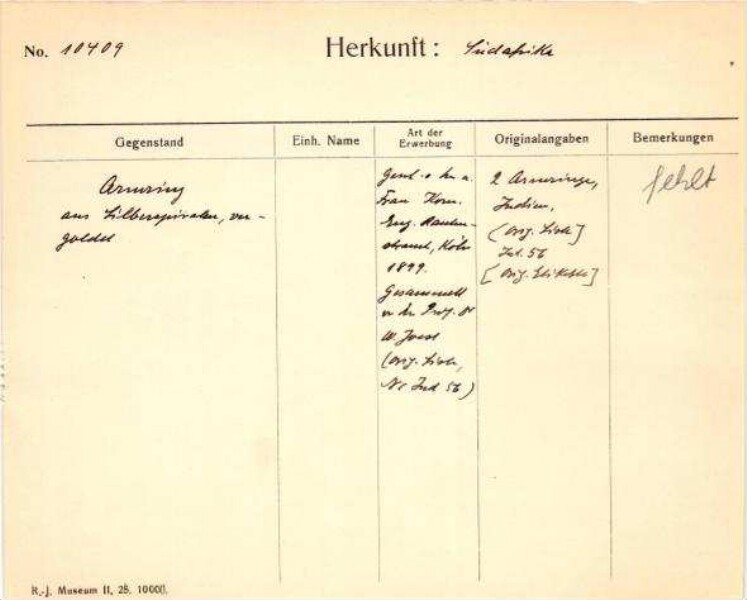 No. 10409
Herkunft: Südafrika
Gegenstand
Einh. Name
Art der
Erwerbung
Originalangaben
Bemerkungen
Armring
aus Silberspiralen, ver-
goldet
Gesch. v. Hr. u.
Frau Kom.
Eug. Rauten-
strauch, Köln
1899.
Gesammelt
v. Hr. Prof. Dr
W. Joest
(Orig. Liste,
Nr Ind 56)
2 Armringe,
Indien.
(Orig. Liste]
Ind. 56
[Orig. Etikette]
fehlt
R.-J. Museum II, 28. 10000.